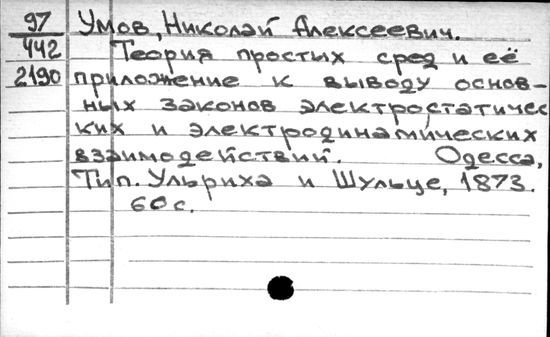 97 Умов, Николай Алексеевич.
442 Теория простых сред и её
2190 приложение к выводу основ-
ных законов электростатичес
ких и электродинамических
взаимодействий. Одесса,
Тип. Ульриха и Шульце, 1873.
60 с.